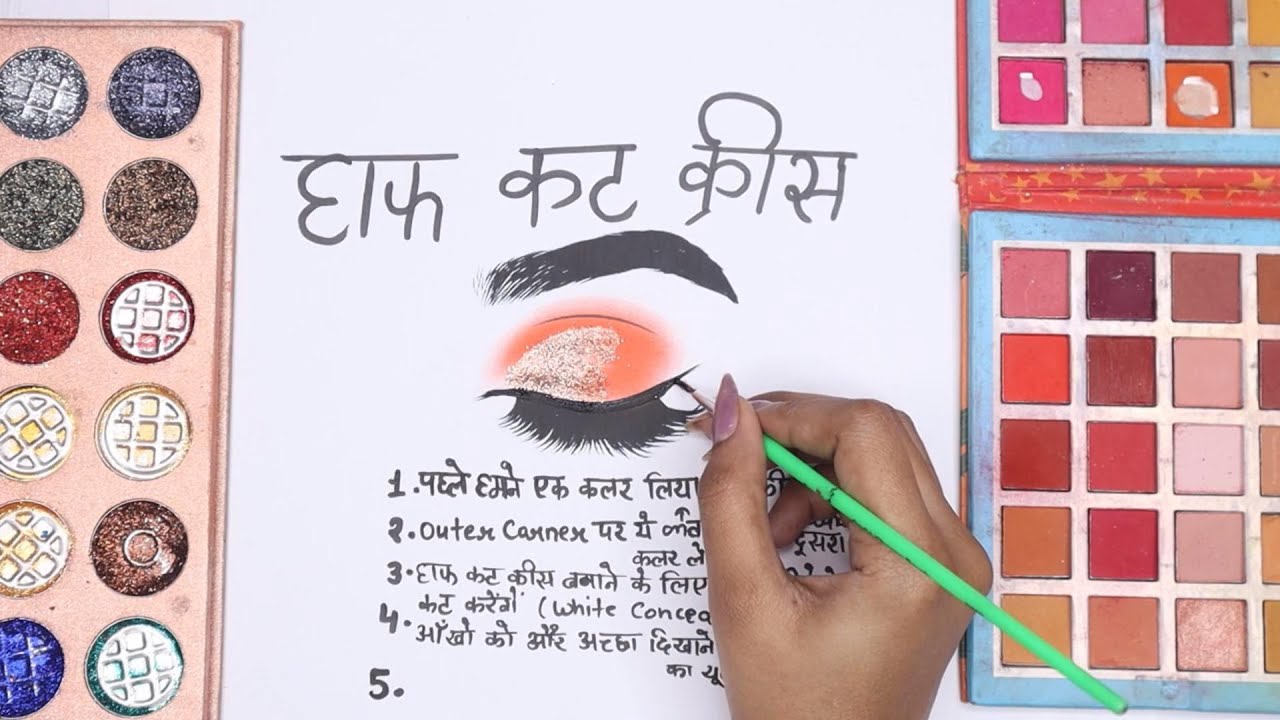 हाफ कट क्रीस
1. पहले हमने एक कलर लिया
2. Outer Corner पर ये
दूसरा
कलर ले
3. हाफ कट क्रीस बनाने के लिए
कट करेंगें (White Concea
4. आँखो को और अच्छा दिखाने
का यू
5.